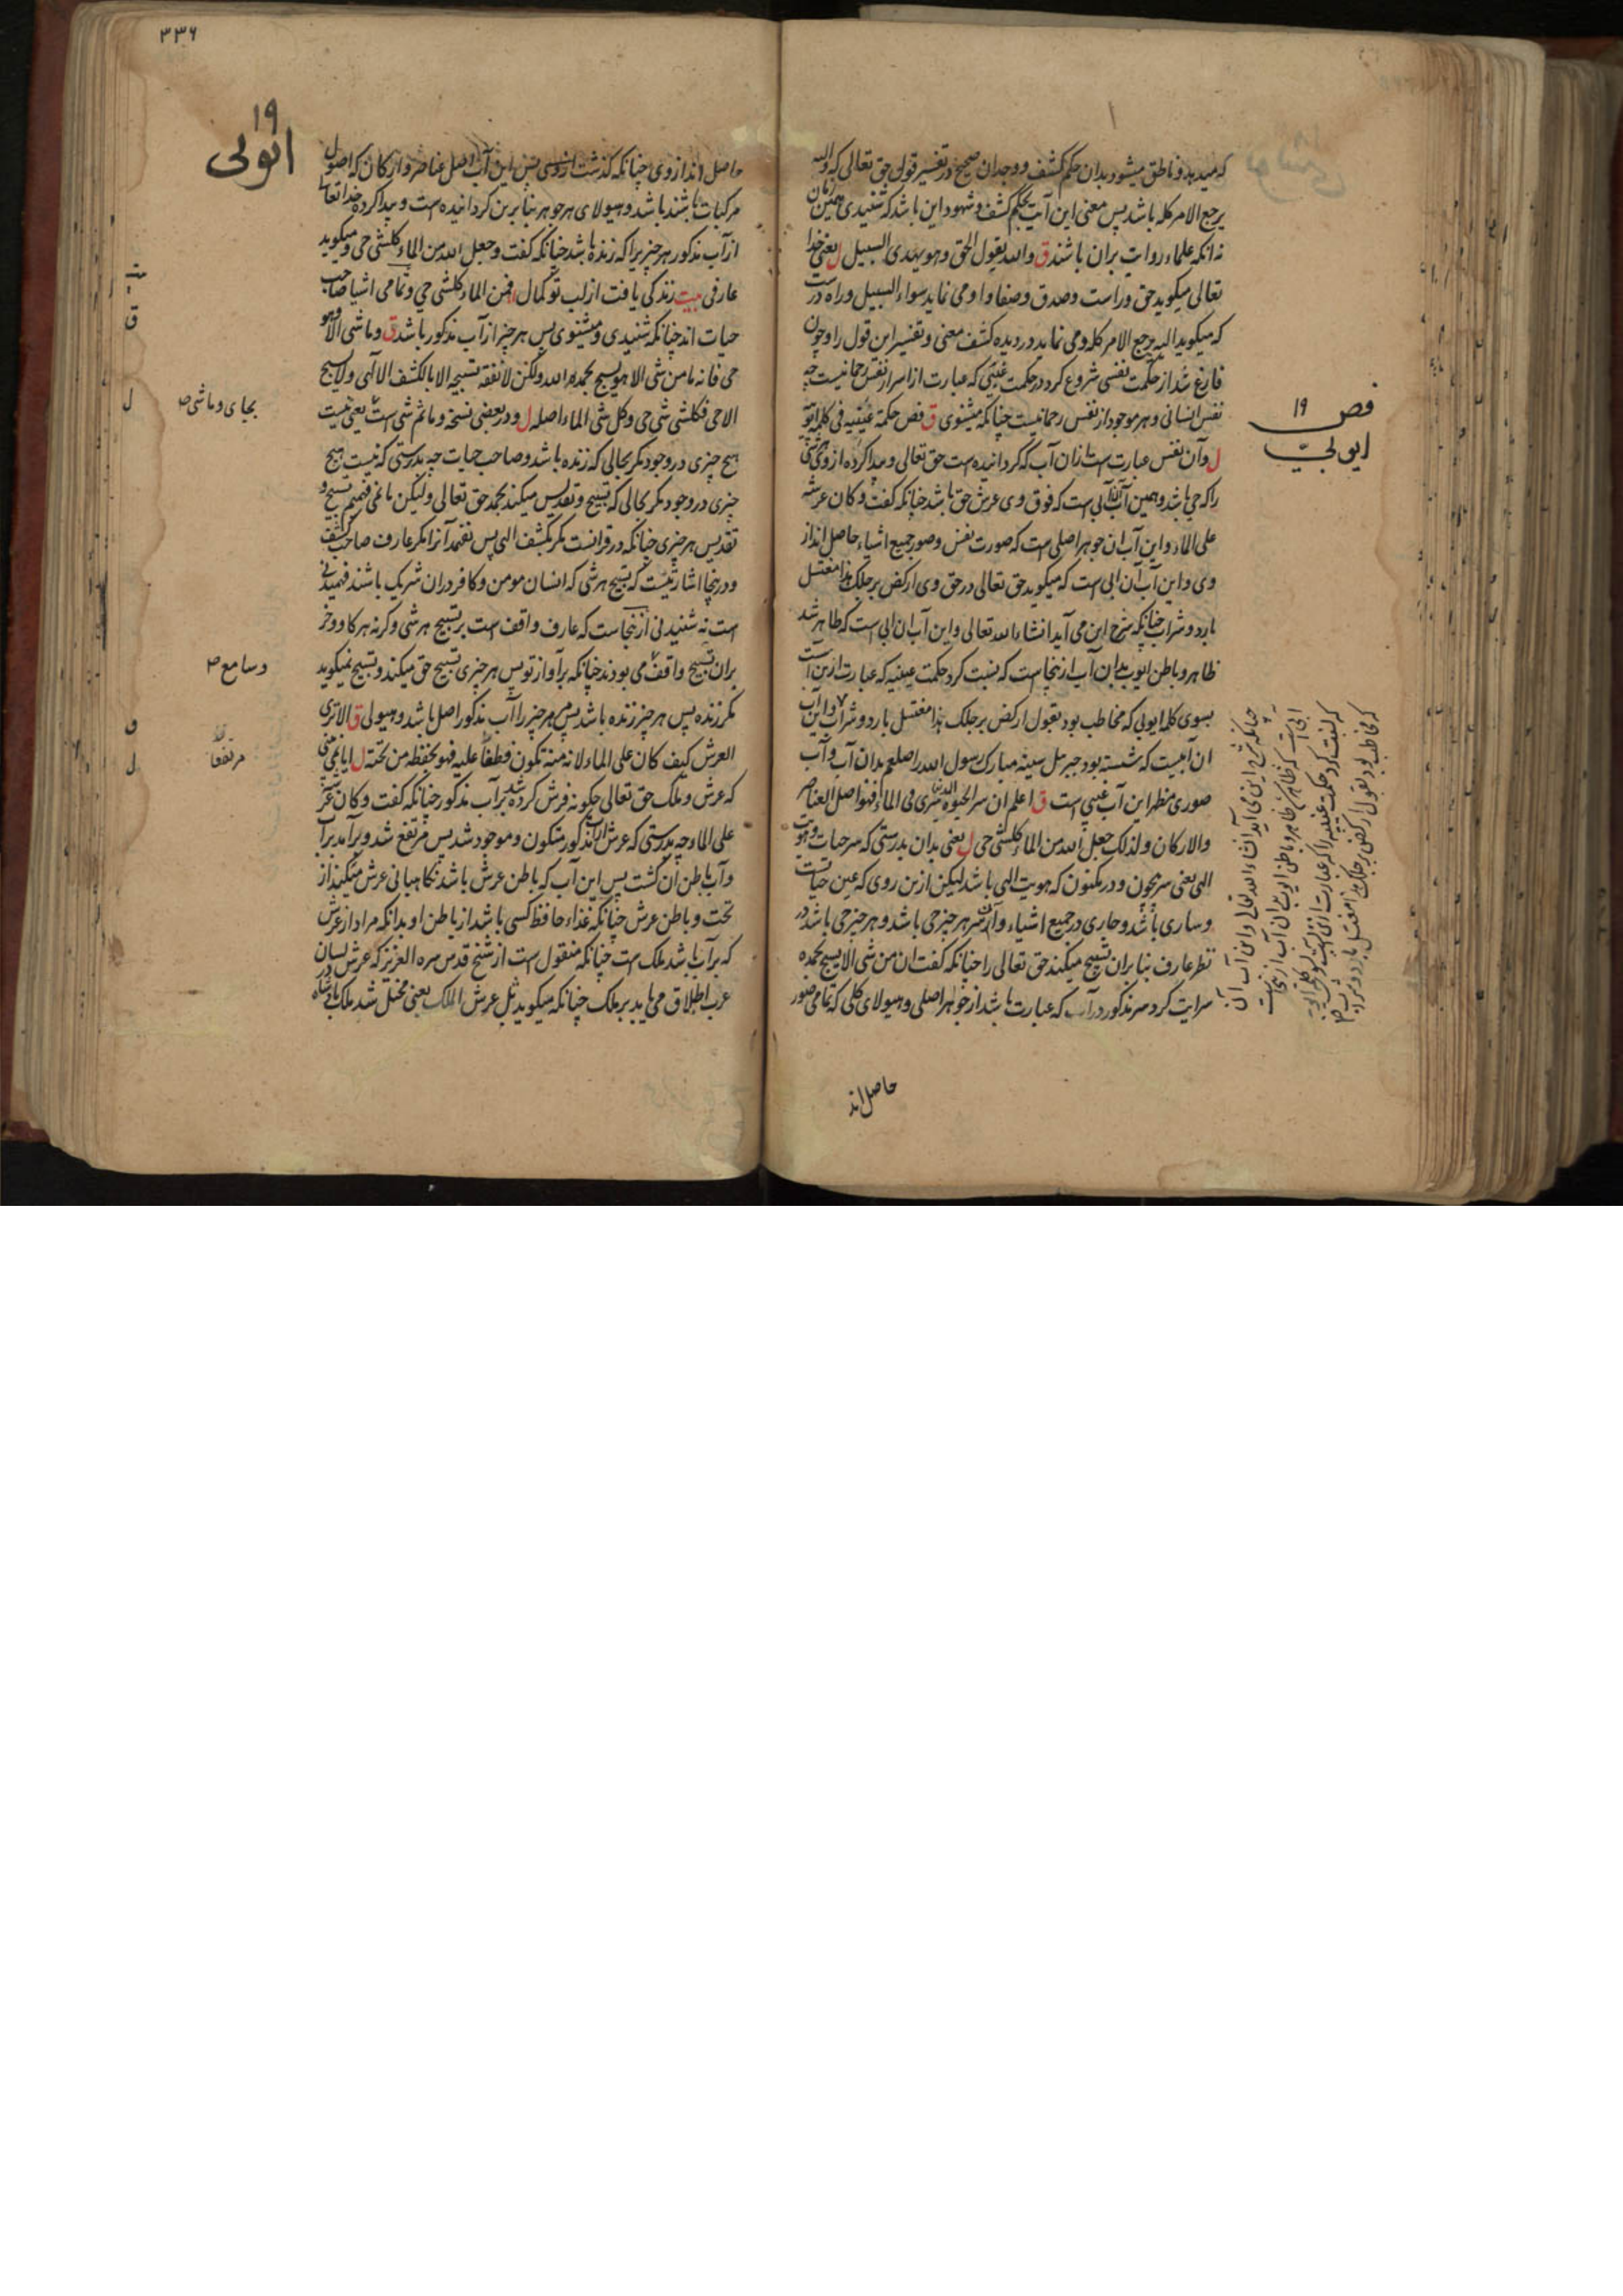 که میدهد و ناطق میشود بدان حکم کشف و وجدان صحیح در تفسیر قول حق تعالی که والیه
یرجع الامر کله باشد پس معنی این آیت بحکم کشف و شهود این باشد که شنیدی
نه آنکه علماء روایت بران باشند ق والله یقول الحق وهو یهدی السبیل ل یعنی خدا
تعالی میگوید حق و راست و صدق و صفا و او می نماید سواء السبیل و راه راست
که میگوید الیه یرجع الامر کله و می نماید در دیده کشف معنی و تفسیر این قول را و چون
فارغ شد از حکمت نفسی شروع کرد در حکمت غیبی که عبارت از اسرار نفس رحمانیست چه
نفس انسانی و هر موجود از نفس رحمانیست چنانکه میشنوی ق فص حکمة غیبیه فی کلمة ایوبیه
ل و آن نفس عبارت است ازان آب که گردانیده است حق تعالی و پیدا کرده از وی هر شیء
را که حی باشد و همین آب آن آبی است که فوق وی عرش حق باشد چنانکه گفت وکان عرشه
علی الماء و این آب آن جوهر اصلی است که صورت نفس و صور جمیع اشیاء حاصل اند از
وی و این آب آن آبی است که میگوید حق تعالی در حق وی ارکض برجلک هذا مغتسل
بارد و شراب چنانکه شرح این می آید انشاء الله تعالی و این آب آن آبی است که طاهر شد
ظاهر و باطن ایوب بدان آب ازینجاست که نسبت کرد حکمت غیبیه که عبارت ازین آب است
بسوی کلمه ایوبی که مخاطب بود بقول ارکض برجلک هذا مغتسل بارد و شراب و این آب
آن آبیست که شسته بود جبرئیل سینه مبارک رسول الله را صلعم بدان آب و آب
صوری مظهر این آب غیبی است ق اعلم ان سر الحیوة سری فی الماء فهو اصل العناصر
والارکان ولذلک جعل الله من الماء کل شی حی ل یعنی بدان بدرستی که سر حیات و هویت
الهی یعنی سر بیچون و در مکنون که هویت الهی باشد لیکن ازین روی که عین حیات است
و ساری باشد و جاری در جمیع اشیاء و ازان سر هر چیز حی باشد و هر چیز حی باشد در
نظر عارف بنا بران تسبیح میکنند حق تعالی را چنانکه گفت ان من شی الا یسبح بحمده
سرایت کرد سر مذکور در آب که عبارت باشد از جواهر اصلی و هیولای کلی که تمامی صور
حاصل اند
فص ۱۹
ایوبیّ
چنانکه شرح این می آید انشاء الله تعالی و این آب آن
آبی است که طاهر شد ظاهر و باطن ایوب بدان آب ازینجاست
که نسبت کرد حکمت غیبیه را که عبارت ازین آبست بسوی کلمه ایوبیه
که مخاطب بود بقول ارکض برجلک هذا مغتسل بارد و شراب
۳۳۶
۱۹
ایوبی
حاصل اند از وی چنانکه گذشت از وی پس این آب اصل عناصر و ارکان که اصول
مرکبات باشند باشد و هیولای هر جوهر بنا برین گردانیده است و پیدا کرده خدا تعالی
از آب مذکور هر چیزیرا که زنده باشد چنانکه گفت وجعل الله من الماء کل شی حی و میگوید
عارفی بیت زندگی یافت از لب تو کمال فمن الماء کل شی حی و تمامی اشیا صاحب
حیات اند چنانکه شنیدی و میشنوی پس هر چیز از آب مذکور باشد ق وما شی الا وهو
حی فانه ما من شی الا هو یسبح بحمد الله ولکن لا نفقه تسبیحه الا بالکشف الالهی ولا یسبح
الا حی فکل شی شی حی وکل شی الماء اصله ل و در بعضی نسخه وما ثم شی است یعنی نیست
هیچ چیزی در وجود مگر بحالی که زنده باشد و صاحب حیات چه بدرستی که نیست هیچ
چیزی در وجود مگر بحالی که تسبیح و تقدیس میکند بحمد حق تعالی ولیکن ما نمی فهمیم تسبیح و
تقدیس هر چیزی چنانکه در قرآنست مگر بکشف الهی پس نفهمد آنرا مگر عارف صاحب کشف
و درینجا اشارتیست که تسبیح هر شی که انسان مومن و کافر دران شریک باشند فهمیدنی
است نه شنیدنی ازینجاست که عارف واقف است بر تسبیح هر شی و گرنه هر گاو و خر
بران تسبیح واقف می بودند چنانکه بر آواز تو پس هر چیزی تسبیح حق میکند و تسبیح نمیگوید
مگر زنده پس هر چیز زنده باشد پس هر چیز را آب مذکور اصل باشد و هیولی ق الا تری
العرش کیف کان علی الماء لانه منه تکون فطفا علیه فهو یحفظه من تحته ل ایا نمی بینی
که عرش و ملک حق تعالی چگونه فرش کرده شد بر آب مذکور چنانکه گفت وکان عرشه
علی الماء چه بدرستی که عرش ازان آب مذکور متکون و موجود شد پس مرتفع شد و برآمد بر آب
و آب باطن آن گشت پس این آب که باطن عرش باشد نگاهبانی عرش میکند از
تحت و باطن عرش چنانکه غذاء حافظ کسی باشد از باطن او بدانکه مراد از عرش
که بر آب باشد ملک است چنانکه منقول است از شیخ قدس سره العزیز که عرش در لسان
عرب اطلاق می یابد بر ملک چنانکه میگوید ثل عرش الملک یعنی مختل شد ملک پادشاه
ق
ل
بجای و ما شی ص
و سامع ص
ق
مرتفعا
ل